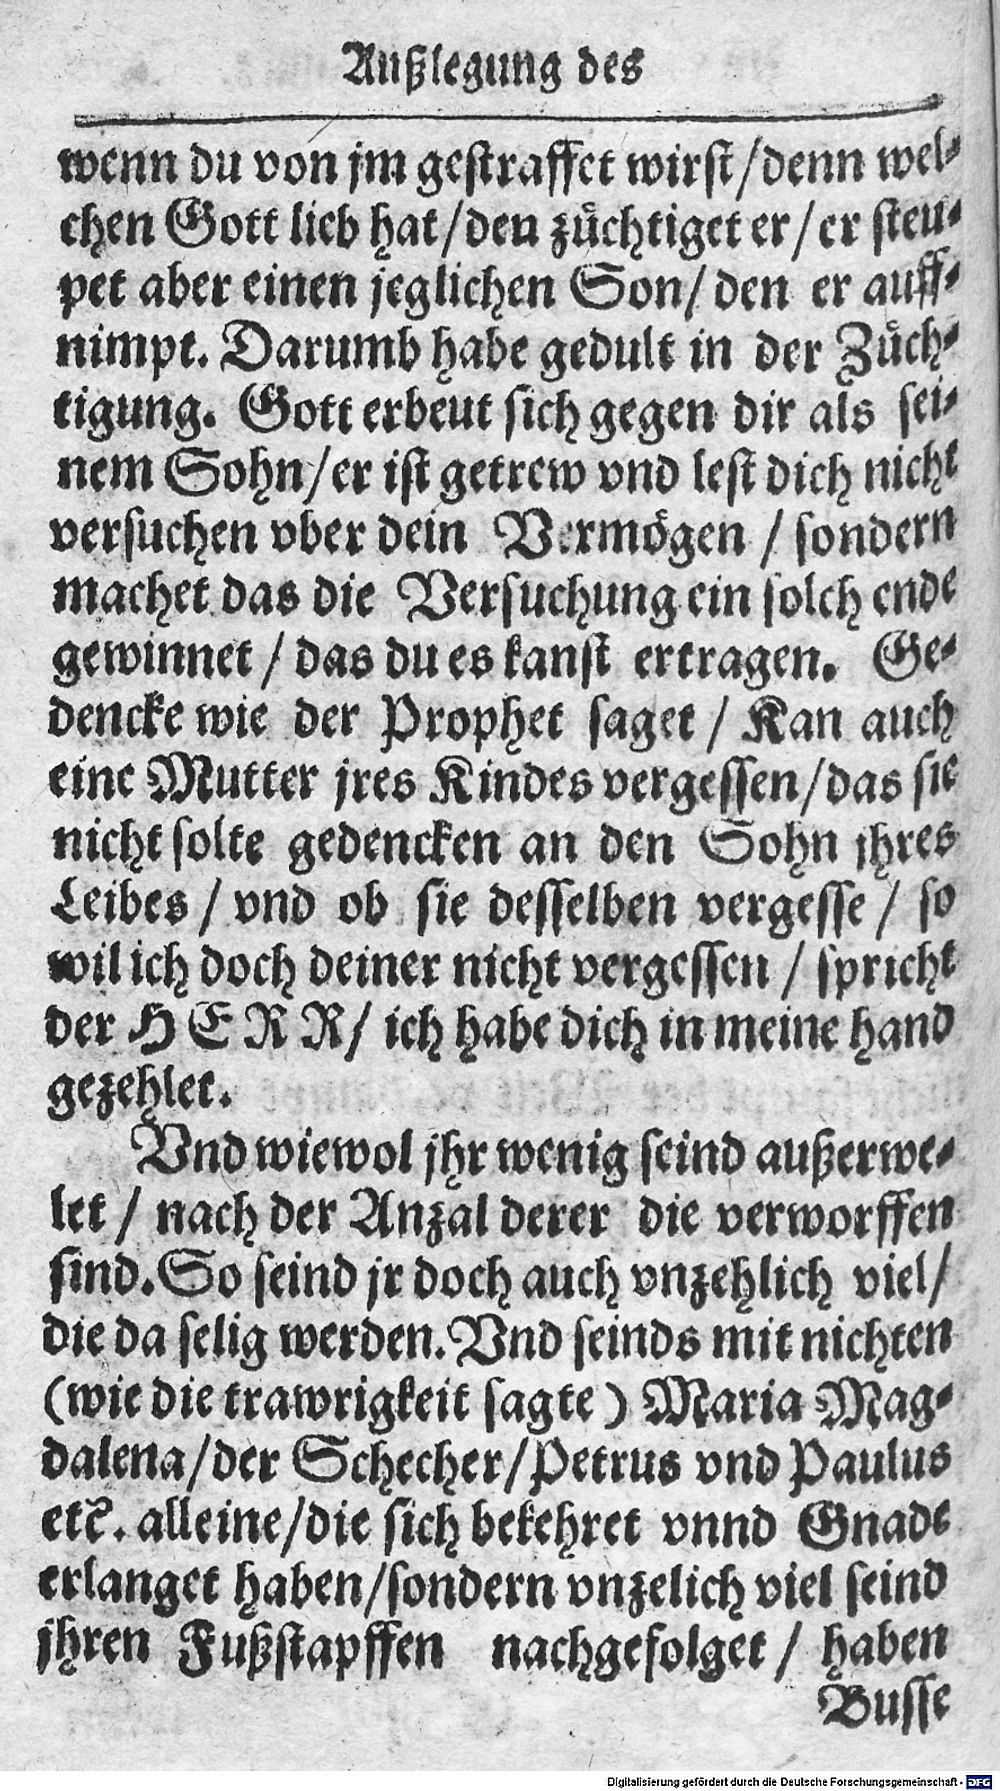 Außlegung des
wenn du von jm gestraffet wirst/denn wel-
chen Gott lieb hat/den züchtiget er/er steu-
pet aber einen jeglichen Son/den er auff-
nimpt. Darumb habe gedult in der Züch-
tigung. Gott erbeut sich gegen dir als sei-
nem Sohn/er ist getrew vnd lest dich nicht
versuchen vber dein Vermögen / sondern
machet das die Versuchung ein solch ende
gewinnet / das du es kanst ertragen. Ge-
dencke wie der Prophet saget / Kan auch
eine Mutter jres Kindes vergessen/das sie
nicht solte gedencken an den Sohn jhres
Leibes / vnd ob sie desselben vergesse / so
wil ich doch deiner nicht vergessen / spricht
der HERR/ ich habe dich in meine hand
gezehlet.
Vnd wiewol jhr wenig seind außerwe-
let / nach der Anzal derer die verworffen
sind. So seind jr doch auch vnzehlich viel/
die da selig werden. Vnd seinds mit nichten
(wie die trawrigkeit sagte) Maria Mag-
dalena/der Schecher/Petrus vnd Paulus
etc. alleine/die sich bekehret vnnd Gnade
erlanget haben/sondern vnzelich viel seind
jhren Fußstapffen nachgefolget / haben
Busse
Digitalisierung gefördert durch die Deutsche Forschungsgemeinschaft - DFG